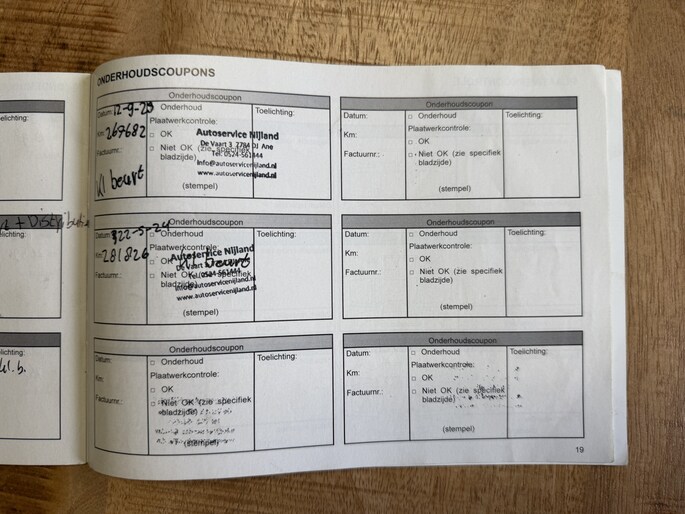 ONDERHOUDSCOUPONS
elichting:
+ Distributie
lichting:
kl. b.
Onderhoudscoupon
Datum: 12-9-23
Km: 267682
Factuurnr.:
kl beurt
Onderhoud
Plaatwerkcontrole:
OK
Niet OK (zie specifiek
bladzijde)
Autoservice Nijland
De Vaart 3 7784 DJ Ane
Tel: 0524-561444
info@autoservicenijland.nl
www.autoservicenijland.nl
(stempel)
Toelichting:
Onderhoudscoupon
Datum:
Km:
Factuurnr.:
Onderhoud
Plaatwerkcontrole:
OK
Niet OK (zie specifiek
bladzijde)
(stempel)
Toelichting:
Onderhoudscoupon
Datum: 22-5-24
Km: 281826
Factuurnr.:
Onderhoud
Plaatwerkcontrole:
OK
Niet OK (zie specifiek
bladzijde)
Beurt
Autoservice Nijland
De Vaart
Tel: 0524-561444
info@autoservicenijland.nl
www.autoservicenijland.nl
(stempel)
Toelichting:
Onderhoudscoupon
Datum:
Km:
Factuurnr.:
Onderhoud
Plaatwerkcontrole:
OK
Niet OK (zie specifiek
bladzijde)
(stempel)
Toelichting:
Onderhoudscoupon
Datum:
Km:
Factuurnr.:
Onderhoud
Plaatwerkcontrole:
OK
Niet OK (zie specifiek
bladzijde)
(stempel)
Toelichting:
Onderhoudscoupon
Datum:
Km:
Factuurnr.:
Onderhoud
Plaatwerkcontrole:
OK
Niet OK (zie specifiek
bladzijde)
(stempel)
Toelichting:
19